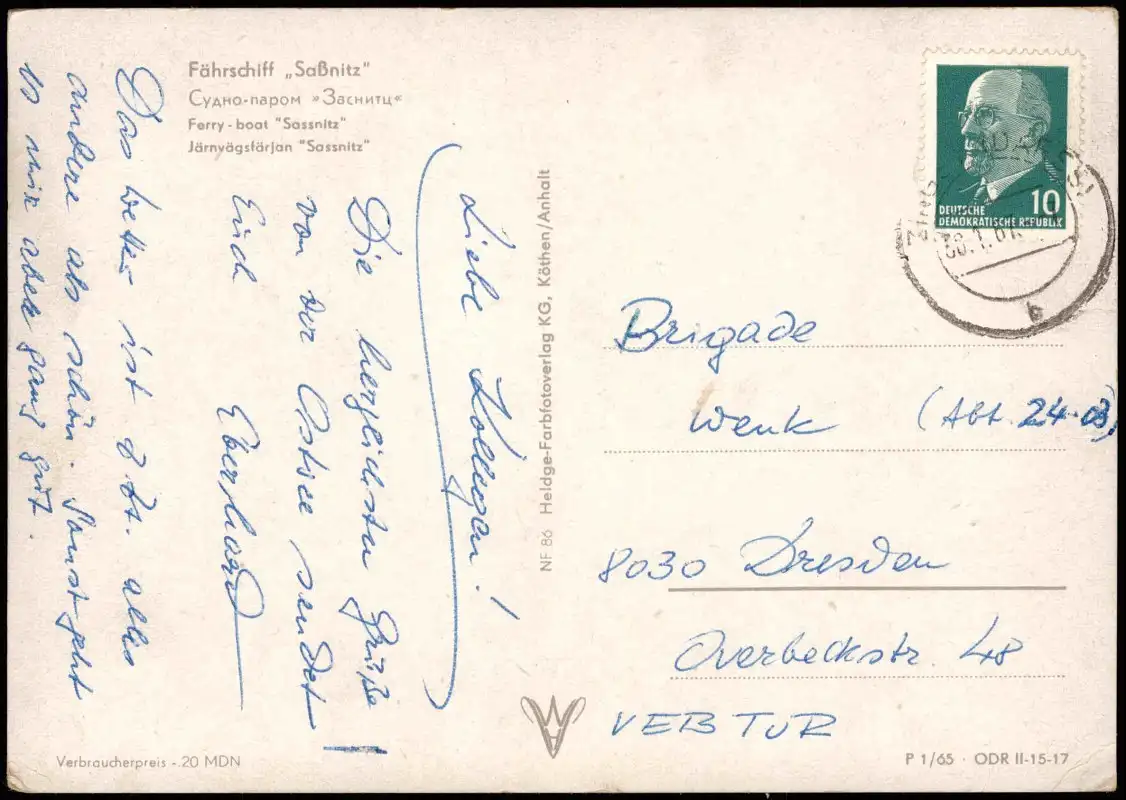 Fährschiff „Saßnitz"
Судно-паром »Засниtц«
Ferry-boat "Sassnitz"
Järnvägsfärjan "Sassnitz"
Liebe Kollegen!
Die herzlichsten Grüße
von der Ostsee sendet
Euch Eberhard
Das Wetter ist z. Zt. alles
andere als schön. Sonst geht
es mir aber ganz gut.
NF 86 Heldge-Farbfotoverlag KG, Köthen/Anhalt
DEUTSCHE 10
DEMOKRATISCHE REPUBLIK
Brigade
Wenk (Abt. 24-03)
8030 Dresden
Overbeckstr. 48
VEB TuR
Verbraucherpreis -.20 MDN
P 1/65 · ODR II-15-17